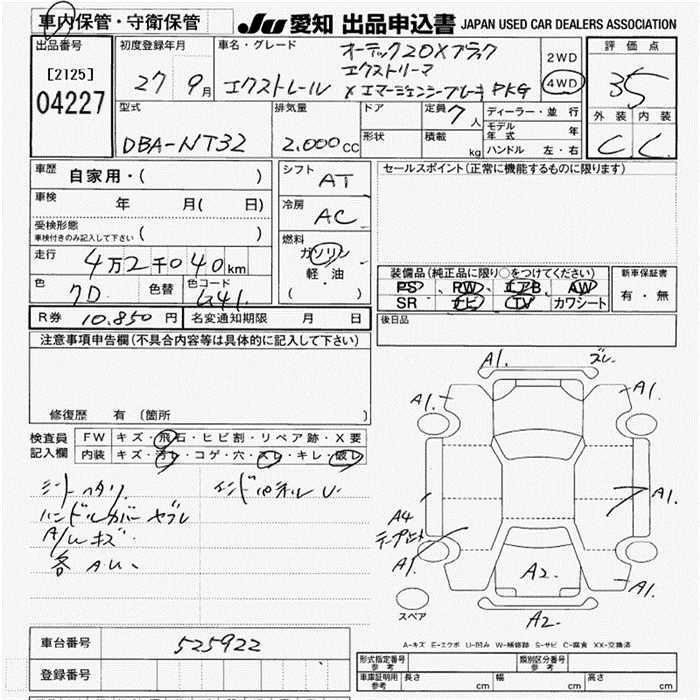 車内保管・守衛保管
JU 愛知 出品申込書 JAPAN USED CAR DEALERS ASSOCIATION
出品番号
[2125]
04227
初度登録年月
27 9月
車名・グレード
オーテック20Xブラック
エクストリーマ
エクストレール X エマージェンシーブレーキ PKG
2WD
4WD
評価点
35
外装 内装
C C
型式
DBA-NT32
排気量
2.000cc
ドア
形状
定員 7人
積載 kg
ディーラー・並行
モデル年式 年
ハンドル 左・右
車歴
自家用・( )
車検
年 月( 日)
受検形態
車検付きのみ記入して下さい ( )
走行
4万2千040km
色
色替
色コード
G41
シフト
AT
冷房
AC
燃料
ガソリン
軽・油
( ・ )
セールスポイント(正常に機能するものに限ります)
装備品(純正品に限り○をつけてください)
PS PW エアB AW
SR ナビ TV カワシート
新車保証書
有・無
R券 10.850円
名変通知期限 月 日
後日品
注意事項申告欄(不具合内容等は具体的に記入して下さい)
修復歴 有 (箇所 )
検査員
記入欄
FW キズ・飛石・ヒビ割・リペア跡・X要
内装 キズ・汚レ・コゲ・穴・スレ・キレ・破レ
シートヘタリ
インパネルU
ハンドルカバーヤブレ
A/Wキズ
各A.U.
A1. ズレ
A1. A1.
A1.
A4
テープ止メ
A1.
A2.
A1.
A2.
スペア
A-キズ E-エクボ U-凹み W-補修跡 S-サビ C-腐食 XX-交換済
車台番号
525922
登録番号
形式指定番号
参考
類別区分番号
参考
車庫証明用
参考
長さ cm 幅 cm 高さ cm